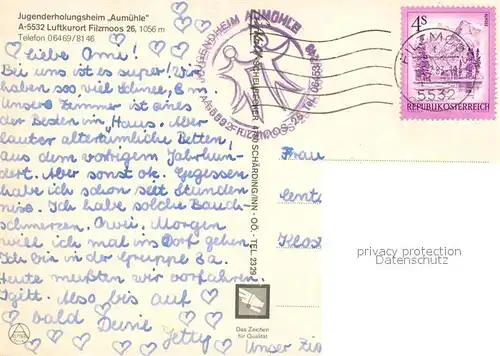 Jugenderholungsheim „Aumühle"
A-5532 Luftkurort Filzmoos 26, 1056 m
Telefon 06469/8146
Liebe Omi!
Bei uns ist es super! Wir
haben soo viel Schnee, 6 m
Unsere Zimmer ist eines
der Besten im „Haus. Aber
lauter altertümliche Betten,
aus dem vorigem Jahrhun-
dert. Aber sonst ok. Gegessen
habe ich schon seit Stunden
nix. Ich habe solche Bauch-
schmerzen. Auwei. Morgen
will ich mal ins Dorf gehen.
Ich bin in der Gruppe 3a.
Heute mußten wir vorfahren.
Igitt. Also bis auf
bald Deine
Jetty
Unser
JUGENDHEIM AUMÜHLE
A-5532 FILZMOOS 26
SCHÄRDING/INN - OÖ. - TEL. 2329
Das Zeichen
für Qualität
4S
FILZMOOS
5532
REPUBLIK ÖSTERREICH
Frau
privacy protection
Datenschutz